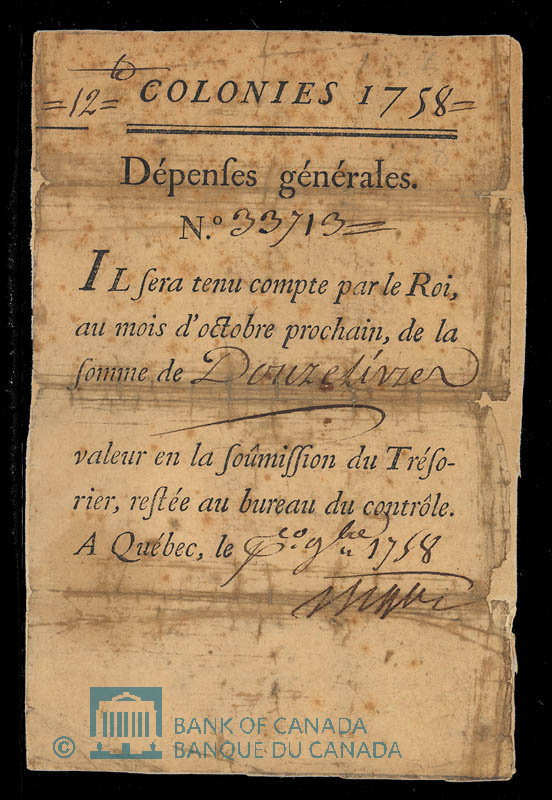 =12=# COLONIES 1758=
Dépenſes générales.
N.º 33713=
IL ſera tenu compte par le Roi,
au mois d'octobre prochain, de la
ſomme de Douze livres
valeur en la ſoûmiſſion du Tréſo-
rier, reſtée au bureau du contrôle.
A Québec, le p.er 9bre 1758
BANK OF CANADA
© BANQUE DU CANADA